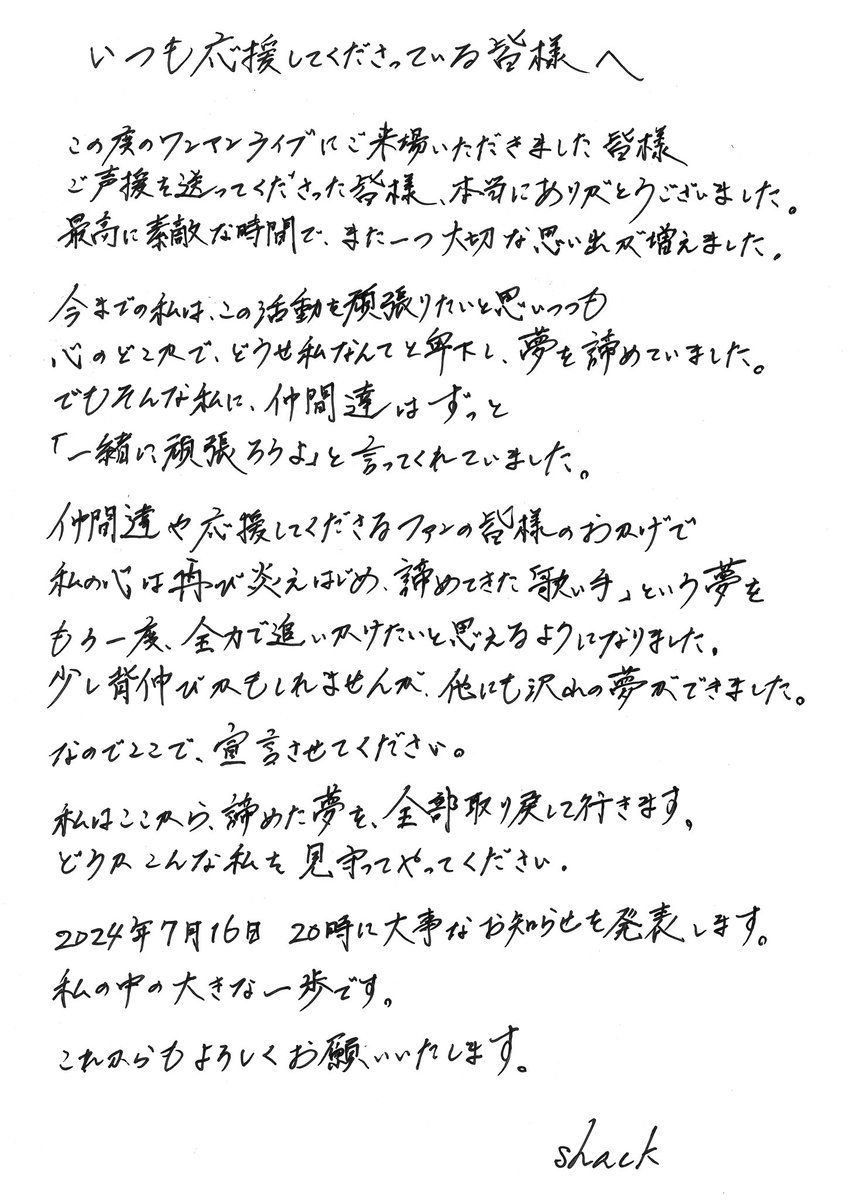 いつも応援してくださっている皆様へ
この度のワンマンライブにご来場いただきました皆様
ご声援を送ってくださった皆様、本当にありがとうございました。
最高に素敵な時間で、また一つ大切な思い出が増えました。
今までの私は、この活動を頑張りたいと思いつつも
心のどこかで、どうせ私なんてと卑下し、夢を諦めていました。
でもそんな私に、仲間達はずっと
「一緒に頑張ろうよ」と言ってくれていました。
仲間達や応援してくださるファンの皆様のおかげで
私の心は再び炎えはじめ、諦めてきた「歌い手」という夢を
もう一度、全力で追いかけたいと思えるようになりました。
少し背伸びかもしれませんが、他にも沢山の夢ができました。
なのでここで、宣言させてください。
私はここから、諦めた夢を、全部取り戻して行きます。
どうかこんな私を見守ってやってください。
2024年7月16日 20時に大事なお知らせを発表します。
私の中の大きな一歩です。
これからもよろしくお願いいたします。
shack